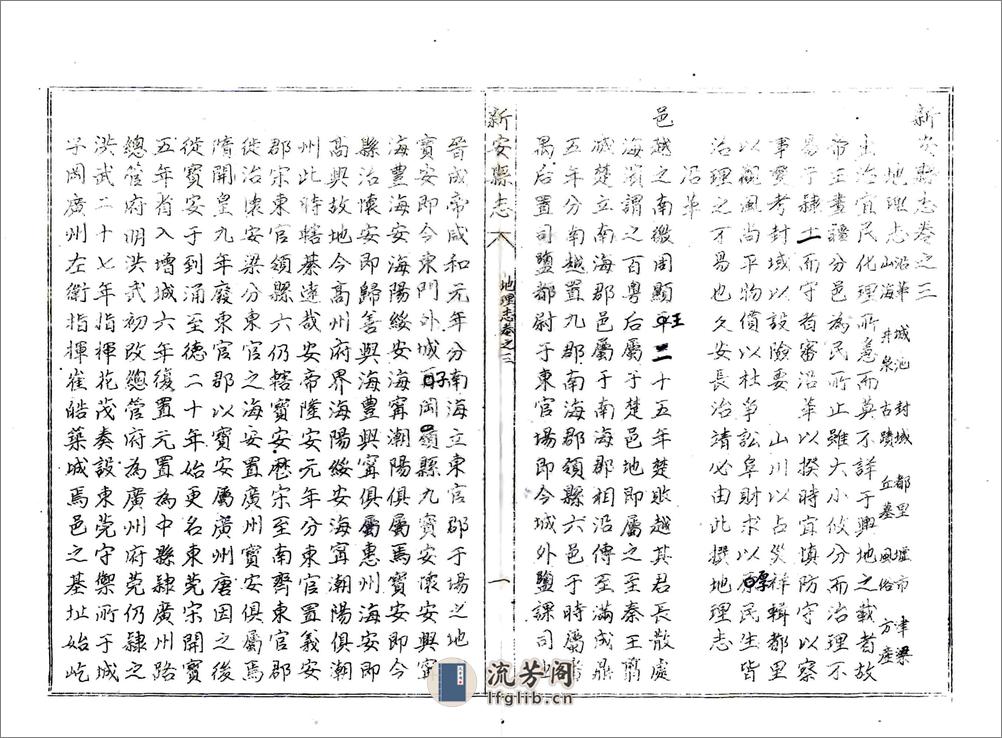 新安縣志卷之三
地理志 沿革 城池 封域 都里 墟市 津梁
山海 井泉 古蹟 丘墓 風俗 方產
土治宜民化理所急而莫不詳于輿地之載者故
帝王畫疆分邑為民所止雖大小攸分而治理不
易子隸土而守者審沿革以揆時宜填防守以察
事變考封域以設險要 山川以占災祥輯都里
以觀風尚平物價以杜爭訟阜財求以厚民生皆
治理之不易也久安長治請必由此撰地理志
沿革
邑越之南徼周顯王二十五年楚敗越其君長散處
海濱謂之百粵后屬于楚邑地即屬之至秦王翦
滅楚立南海郡邑屬于南海郡相沿傳至滿成鼎
五年分南越置九郡南海郡領縣六邑于時屬番
禺后置司鹽都尉于東官場即今城外鹽課司也
新安縣志 地理志卷之三 一
晉成帝咸和元年分南海立東官郡于場之地
寶安即今東門外城子岡領縣九寶安懷安興寧
海豐海安海陽綏安海寧潮陽俱屬焉寶安即今
縣治懷安即歸善興海豐興寧俱屬惠州海安即
高興故地今高州府界海陽綏安海寧潮陽俱潮
州此時轄綦遠哉安帝隆安元年分東官置義安
郡宋東官領縣六仍轄寶安歷宋至南齊東官郡
徙治懷安梁分東官之海安置廣州寶安俱屬焉
隋開皇九年廢東官郡以寶安屬廣州唐因之後
徙寶安于到涌至德二十年始更名東莞宋開寶
五年省入增城六年復置元置為中縣隸廣州路
總管府明洪武初改總管府為廣州府莞仍隸之
洪武二十七年指揮花茂奏設東莞守禦所于城
子岡廣州左衛指揮崔皓築城焉邑之基址始屹
流芳阁
lfglib.cn